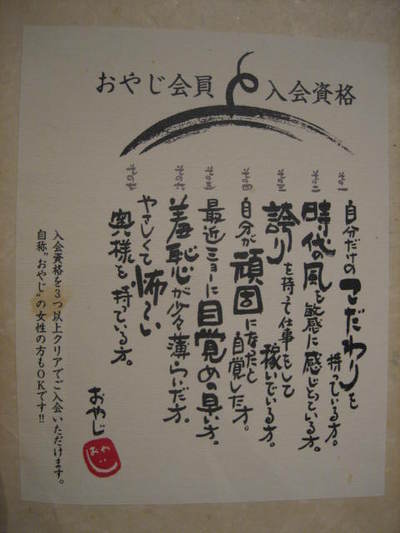 おやじ会員 入会資格
その一
自分だけのこだわりを
持っている方。
その二
時代の風を敏感に感じとっている方。
その三
誇りを持って仕事をして
稼いでいる方。
その四
自分が頑固になったと
自覚した方。
その五
最近ミョーに目覚めの早い方。
その六
羞恥心が少々薄らいだ方。
その七
やさしくて怖〜い
奥様を持っている方。
おやじ
おやじ
入会資格を3つ以上クリアでご入会いただけます。
自称"おやじ"の女性の方もOKです!!